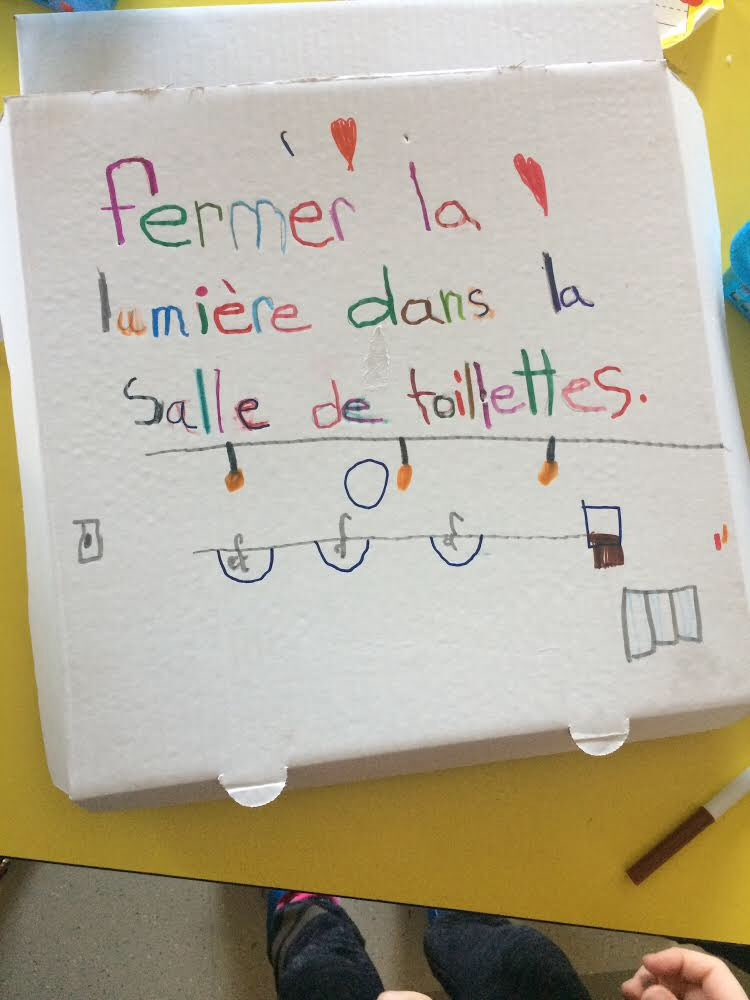 fermer la
lumière dans la
Salle de toillettes.